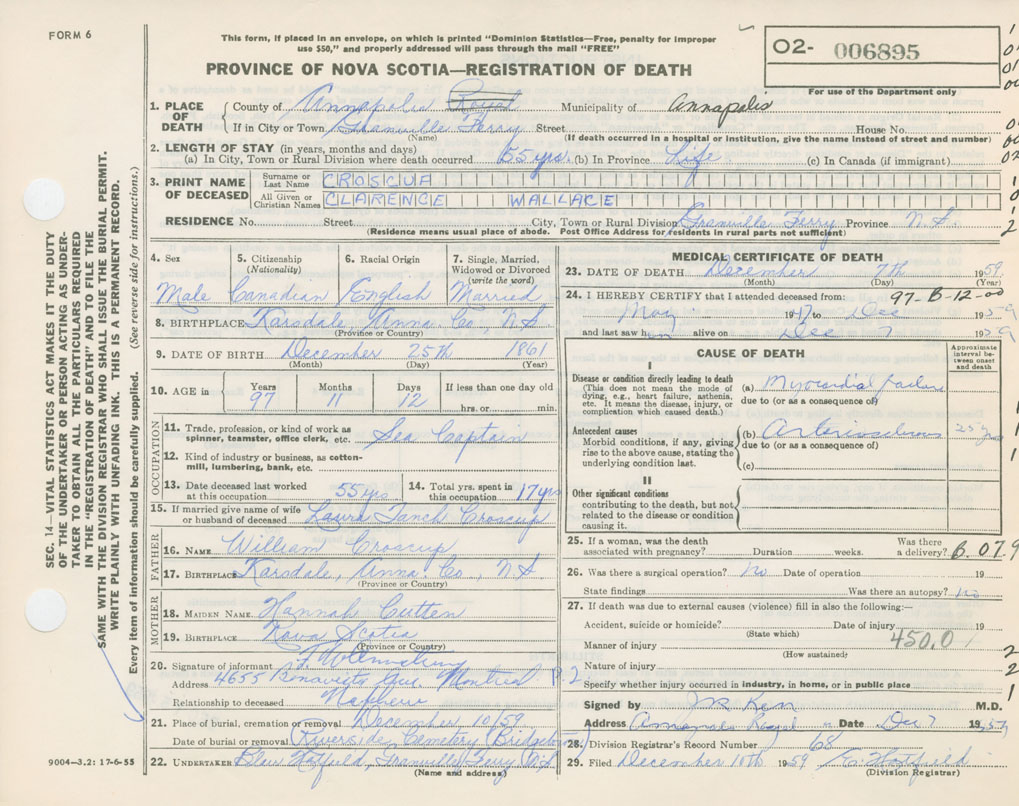 FORM 6
This form, if placed in an envelope, on which is printed "Dominion Statistics—Free, penalty for improper
use $50," and properly addressed will pass through the mail "FREE"
PROVINCE OF NOVA SCOTIA—REGISTRATION OF DEATH
02- 006895
For use of the Department only
SEC. 14—VITAL STATISTICS ACT MAKES IT THE DUTY
OF THE UNDERTAKER OR PERSON ACTING AS UNDER-
TAKER TO OBTAIN ALL THE PARTICULARS REQUIRED
IN THE "REGISTRATION OF DEATH" AND TO FILE THE
SAME WITH THE DIVISION REGISTRAR WHO SHALL ISSUE THE BURIAL PERMIT.
WRITE PLAINLY WITH UNFADING INK. THIS IS A PERMANENT RECORD.
Every item of information should be carefully supplied. (See reverse side for instructions.)
1. PLACE OF DEATH County of Annapolis Royal Municipality of Annapolis
If in City or Town Granville Ferry Street House No.
(Name) (If death occurred in a hospital or institution, give the name instead of street and number)
2. LENGTH OF STAY (in years, months and days)
(a) In City, Town or Rural Division where death occurred 55 yrs. (b) In Province Life (c) In Canada (if immigrant)
3. PRINT NAME OF DECEASED Surname or Last Name CROSCUP
All Given or Christian Names CLARENCE WALLACE
RESIDENCE No. Street City, Town or Rural Division Granville Ferry Province N.S.
(Residence means usual place of abode. Post Office Address for residents in rural parts not sufficient)
4. Sex 5. Citizenship (Nationality) 6. Racial Origin 7. Single, Married, Widowed or Divorced (write the word)
Male Canadian English Married
8. BIRTHPLACE Karsdale, Anna. Co., N.S.
(Province or Country)
9. DATE OF BIRTH December 25th 1861
(Month) (Day) (Year)
10. AGE in Years Months Days If less than one day old
97 11 12 hrs. or min.
OCCUPATION
11. Trade, profession, or kind of work as
spinner, teamster, office clerk, etc. Sea Captain
12. Kind of industry or business, as cotton-
mill, lumbering, bank, etc.
13. Date deceased last worked
at this occupation 55 yrs
14. Total yrs. spent in
this occupation 17 yrs
15. If married give name of wife
or husband of deceased Laura Croscup
FATHER
16. NAME William Croscup
17. BIRTHPLACE Karsdale, Anna Co., N.S.
(Province or Country)
MOTHER
18. MAIDEN NAME Hannah Cutten
19. BIRTHPLACE Nova Scotia
(Province or Country)
20. Signature of informant
Address 4655 Bonavista Ave. Montreal P.2
Relationship to deceased Nephew
21. Place of burial, cremation or removal December 10/59
Date of burial or removal Riverside Cemetery
22. UNDERTAKER Granville Ferry N.S.
(Name and address)
9004—3.2: 17-6-55
MEDICAL CERTIFICATE OF DEATH
23. DATE OF DEATH December 7th 1959
(Month) (Day) (Year)
24. I HEREBY CERTIFY that I attended deceased from: 97-B-12-00
May 1947 to Dec 1959
and last saw him alive on Dec 7 1959
CAUSE OF DEATH
Approximate interval between onset and death
I
Disease or condition directly leading to death
(This does not mean the mode of
dying, e.g., heart failure, asthenia,
etc. It means the disease, injury, or
complication which caused death.)
(a) Myocardial failure
due to (or as a consequence of)
Antecedent causes
Morbid conditions, if any, giving
rise to the above cause, stating the
underlying condition last.
(b) Arteriosclerosis 25 years
due to (or as a consequence of)
(c)
II
Other significant conditions
contributing to the death, but not
related to the disease or condition
causing it.
25. If a woman, was the death Was there
associated with pregnancy? Duration weeks. a delivery? B.07.9
26. Was there a surgical operation? no Date of operation 19
State findings Was there an autopsy? no
27. If death was due to external causes (violence) fill in also the following:—
Accident, suicide or homicide? Date of injury 19
(State which)
Manner of injury 450.0
(How sustained)
Nature of injury
Specify whether injury occurred in industry, in home, or in public place
Signed by M.D.
Address Annapolis Royal Date Dec 7 1959
28. Division Registrar's Record Number 68
29. Filed December 10th 1959 E. Hatfield
(Division Registrar)